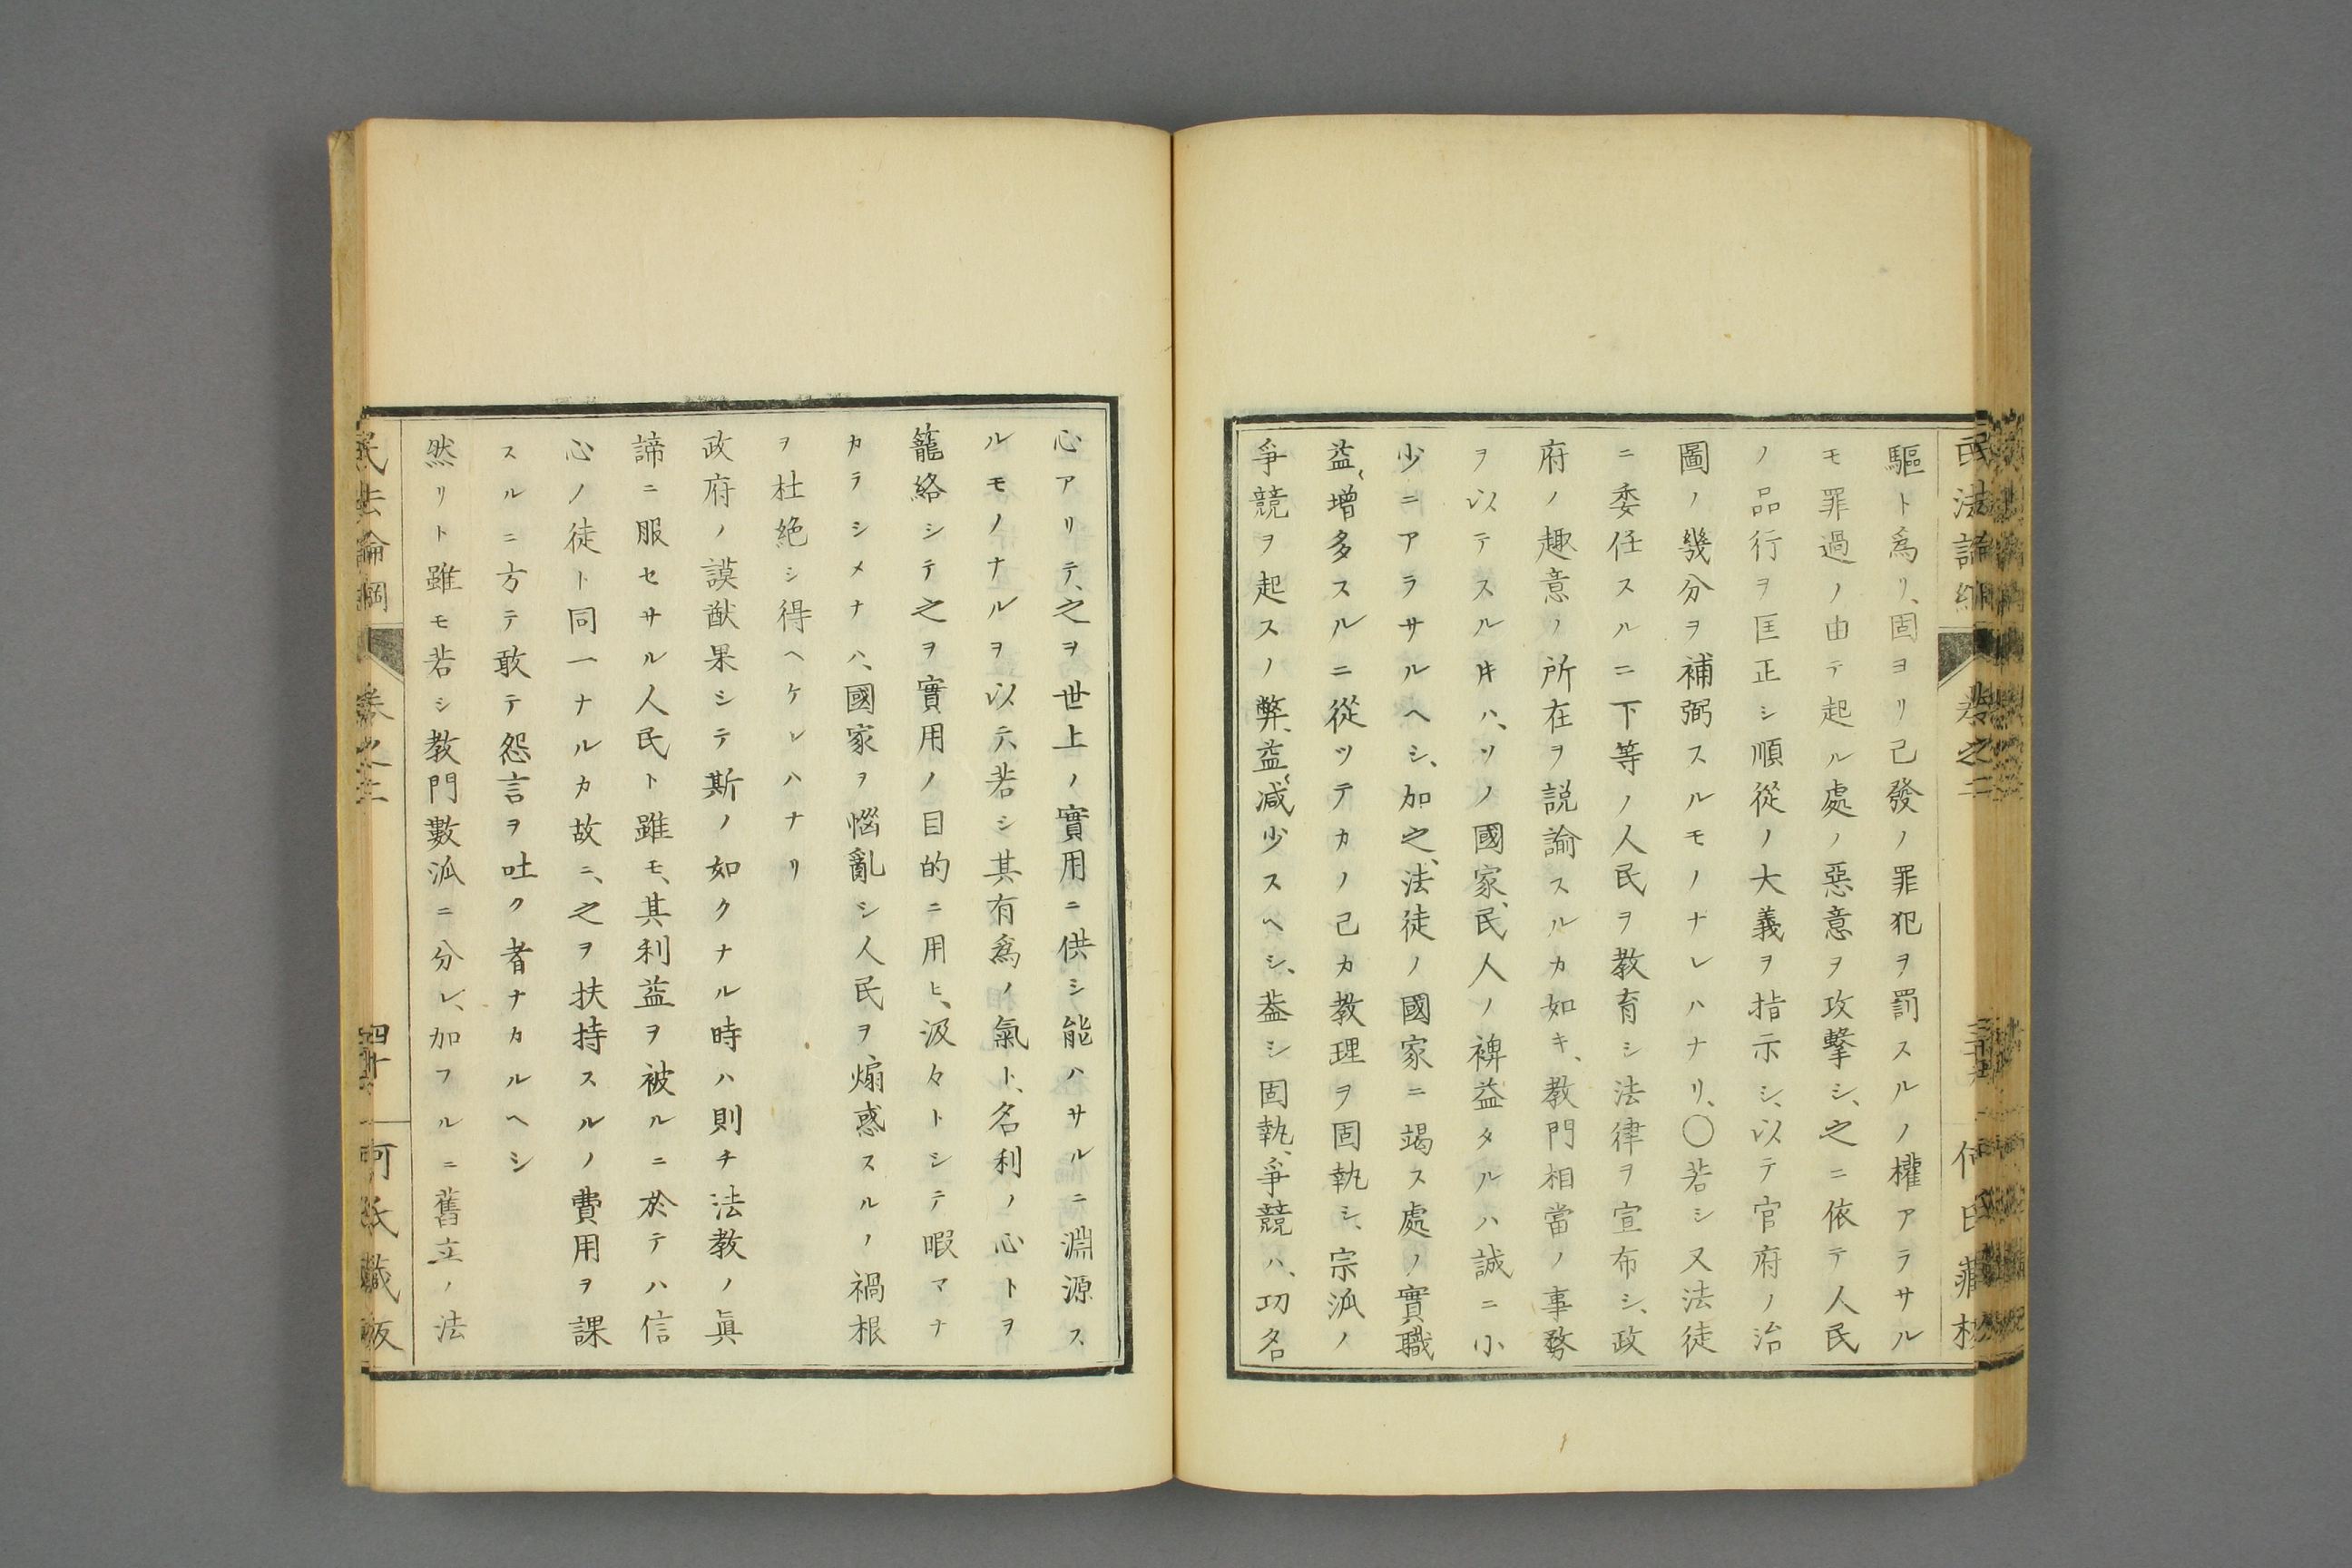 驅ト爲リ、固ヨリ己發ノ罪犯ヲ罰スルノ權アラサル
モ罪過ノ由テ起ル處ノ惡意ヲ攻擊シ、之ニ依テ人民
ノ品行ヲ匡正シ順從ノ大義ヲ指示シ、以テ官府ノ治
圖ノ幾分ヲ補弼スルモノナレハナリ、〇若シ又法徒
ニ委任スルニ下等ノ人民ヲ教育シ法律ヲ宣布シ、政
府ノ趣意ノ所在ヲ説諭スルカ如キ、教門相當ノ事務
ヲ以テスル𪜈ハ、ソノ國家、民人ノ裨益タルハ誠ニ小
少ニアラサルヘシ、加之、法徒ノ國家ニ竭ス處ノ實職
益〻增多スルニ從ツテカノ己カ教理ヲ固執シ、宗派ノ
爭競ヲ起スノ弊、益〻減少スヘシ、蓋シ固執、爭競ハ、功名
心アリテ、之ヲ世上ノ實用ニ供シ能ハサルニ淵源ス
ルモノナルヲ以テ、若シ其有爲ノ氣ト、名利ノ心トヲ
籠絡シテ之ヲ實用ノ目的ニ用ヒ、汲々トシテ暇マナ
カラシメナハ、國家ヲ惱亂シ人民ヲ煽惑スルノ禍根
ヲ杜絶シ得ヘケレハナリ
政府ノ謨猷果シテ斯ノ如クナル時ハ則チ法教ノ眞
諦ニ服セサル人民ト雖モ、其利益ヲ被ルニ於テハ信
心ノ徒ト同一ナルカ故ニ、之ヲ扶持スルノ費用ヲ課
スルニ方テ敢テ怨言ヲ吐ク者ナカルヘシ
然リト雖モ若シ教門數派ニ分レ、加フルニ舊立ノ法
民法論綱　卷之二